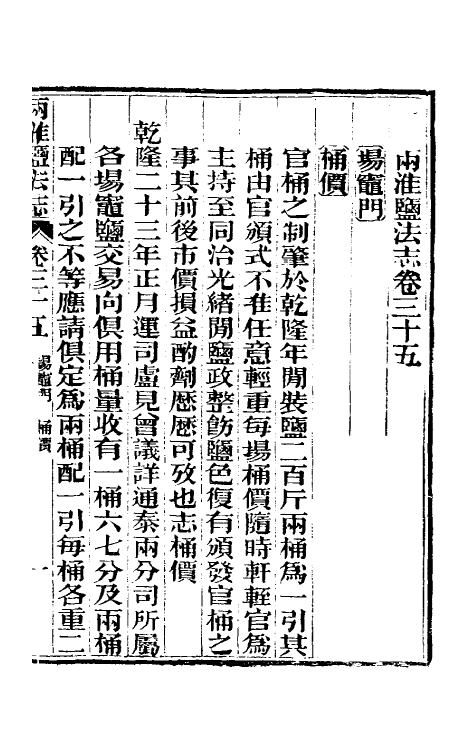 兩淮鹽法志卷三十五
場竈門
桶價
官桶之制肇於乾隆年閒裝鹽二百斤兩桶爲一引其
桶由官頒式不准任意輕重每場桶價隨時軒輊官爲
主持至同治光緒閒鹽政整飭鹽色復有頒發官桶之
事其前後市價損益酌劑歷歷可攷也志桶價
乾隆二十三年正月運司盧見曾議詳通泰兩分司所屬
各場竈鹽交易向俱用桶量收有一桶六七分及兩桶
配一引之不等應請俱定爲兩桶配一引每桶各重二
兩淮鹽法志 卷三十五 場竈門 桶價 一